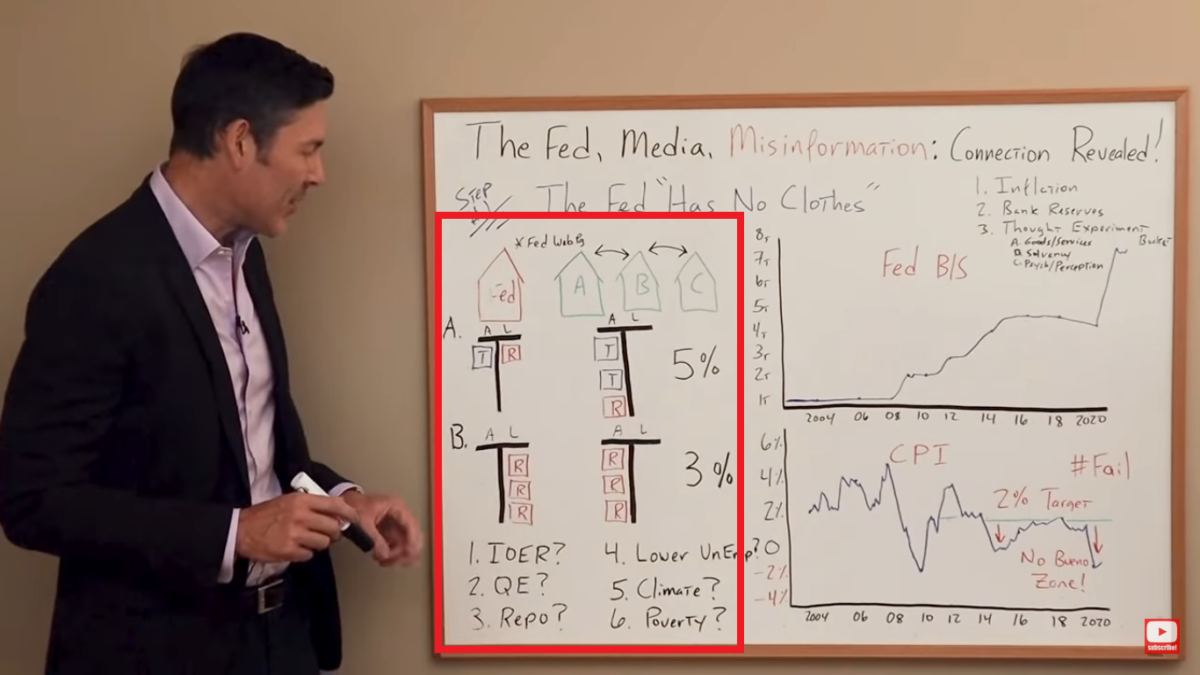 The Fed, Media, Misinformation: Connection Revealed!
STEP 1
The Fed "Has No Clothes"
1. Inflation
2. Bank Reserves
3. Thought Experiment
A. Goods/Services
B. Solvency
C. Psych/Perception
Bucket
* Fed Web Pg
Fed
A
B
C
A.
A L
T R
A L
T
T
R
5%
B.
A L
R
R
R
A L
R
R
R
3%
1. IOER?
2. QE?
3. Repo?
4. Lower UnEmp?
5. Climate?
6. Poverty?
Fed B/S
8T
7T
6T
5T
4T
3T
2T
1T
2004 06 08 10 12 14 16 18 2020
CPI
#Fail
2% Target
No Bueno
Zone!
6%
4%
2%
0
-2%
-4%
2004 06 08 10 12 14 16 18 2020
subscribe!